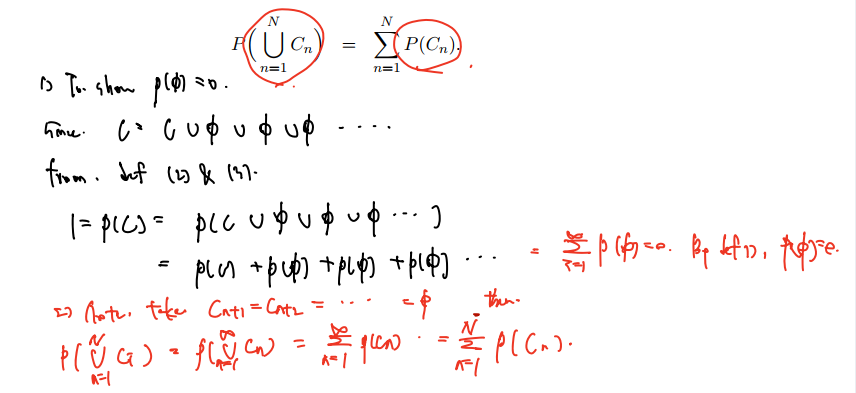 P(⋃_{n=1}^{N} C_n) = ∑_{n=1}^{N} P(C_n).
1) To show p(ϕ)=0.
Since C = C ∪ ϕ ∪ ϕ ∪ ϕ ....
from. def (2) & (3).
1 = p(C) = p(C ∪ ϕ ∪ ϕ ∪ ϕ ...)
= p(C) + p(ϕ) + p(ϕ) + p(ϕ) ... = ∑_{i=1}^{∞} p(ϕ) = 0. By def 1), p(ϕ)=0.
2) Next, take C_{n+1} = C_{n+2} = ... = ϕ then.
p(⋃_{n=1}^{N} C_i) = p(⋃_{n=1}^{∞} C_n) = ∑_{n=1}^{∞} p(C_n) . = ∑_{n=1}^{N} p(C_n).